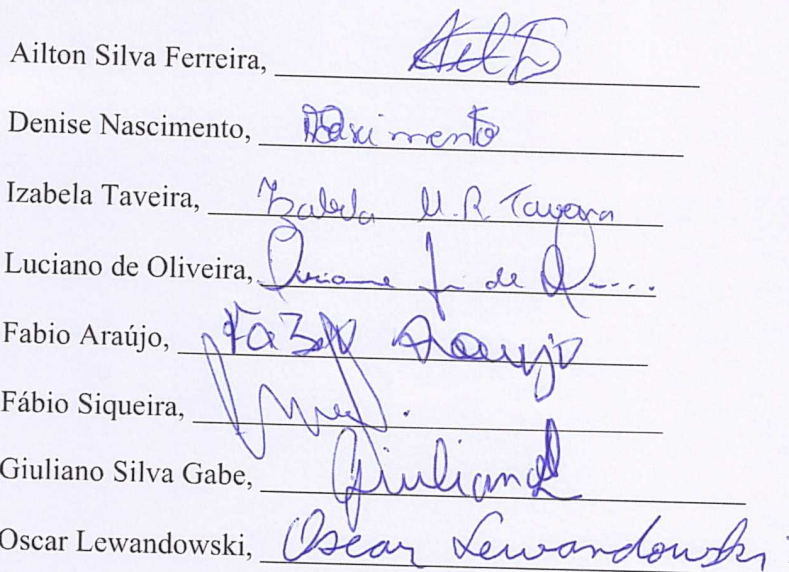 Ailton Silva Ferreira,
Denise Nascimento, Nascimento
Izabela Taveira, Izabela M. R. Taveira
Luciano de Oliveira, de
Fabio Araújo, Araujo
Fábio Siqueira,
Giuliano Silva Gabe, Giuliano
Oscar Lewandowski, Oscar Lewandowski